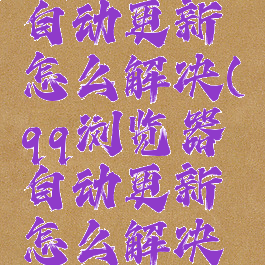 自动更新
怎么解决(
qq浏览器
自动更新
怎么解决